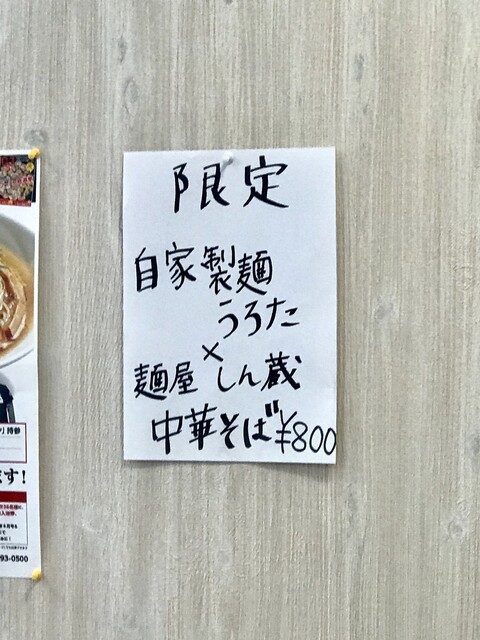 限定
自家製麺
うろた
×
麺屋 しん蔵
中華そば ¥800
持参
ます!
93-0500